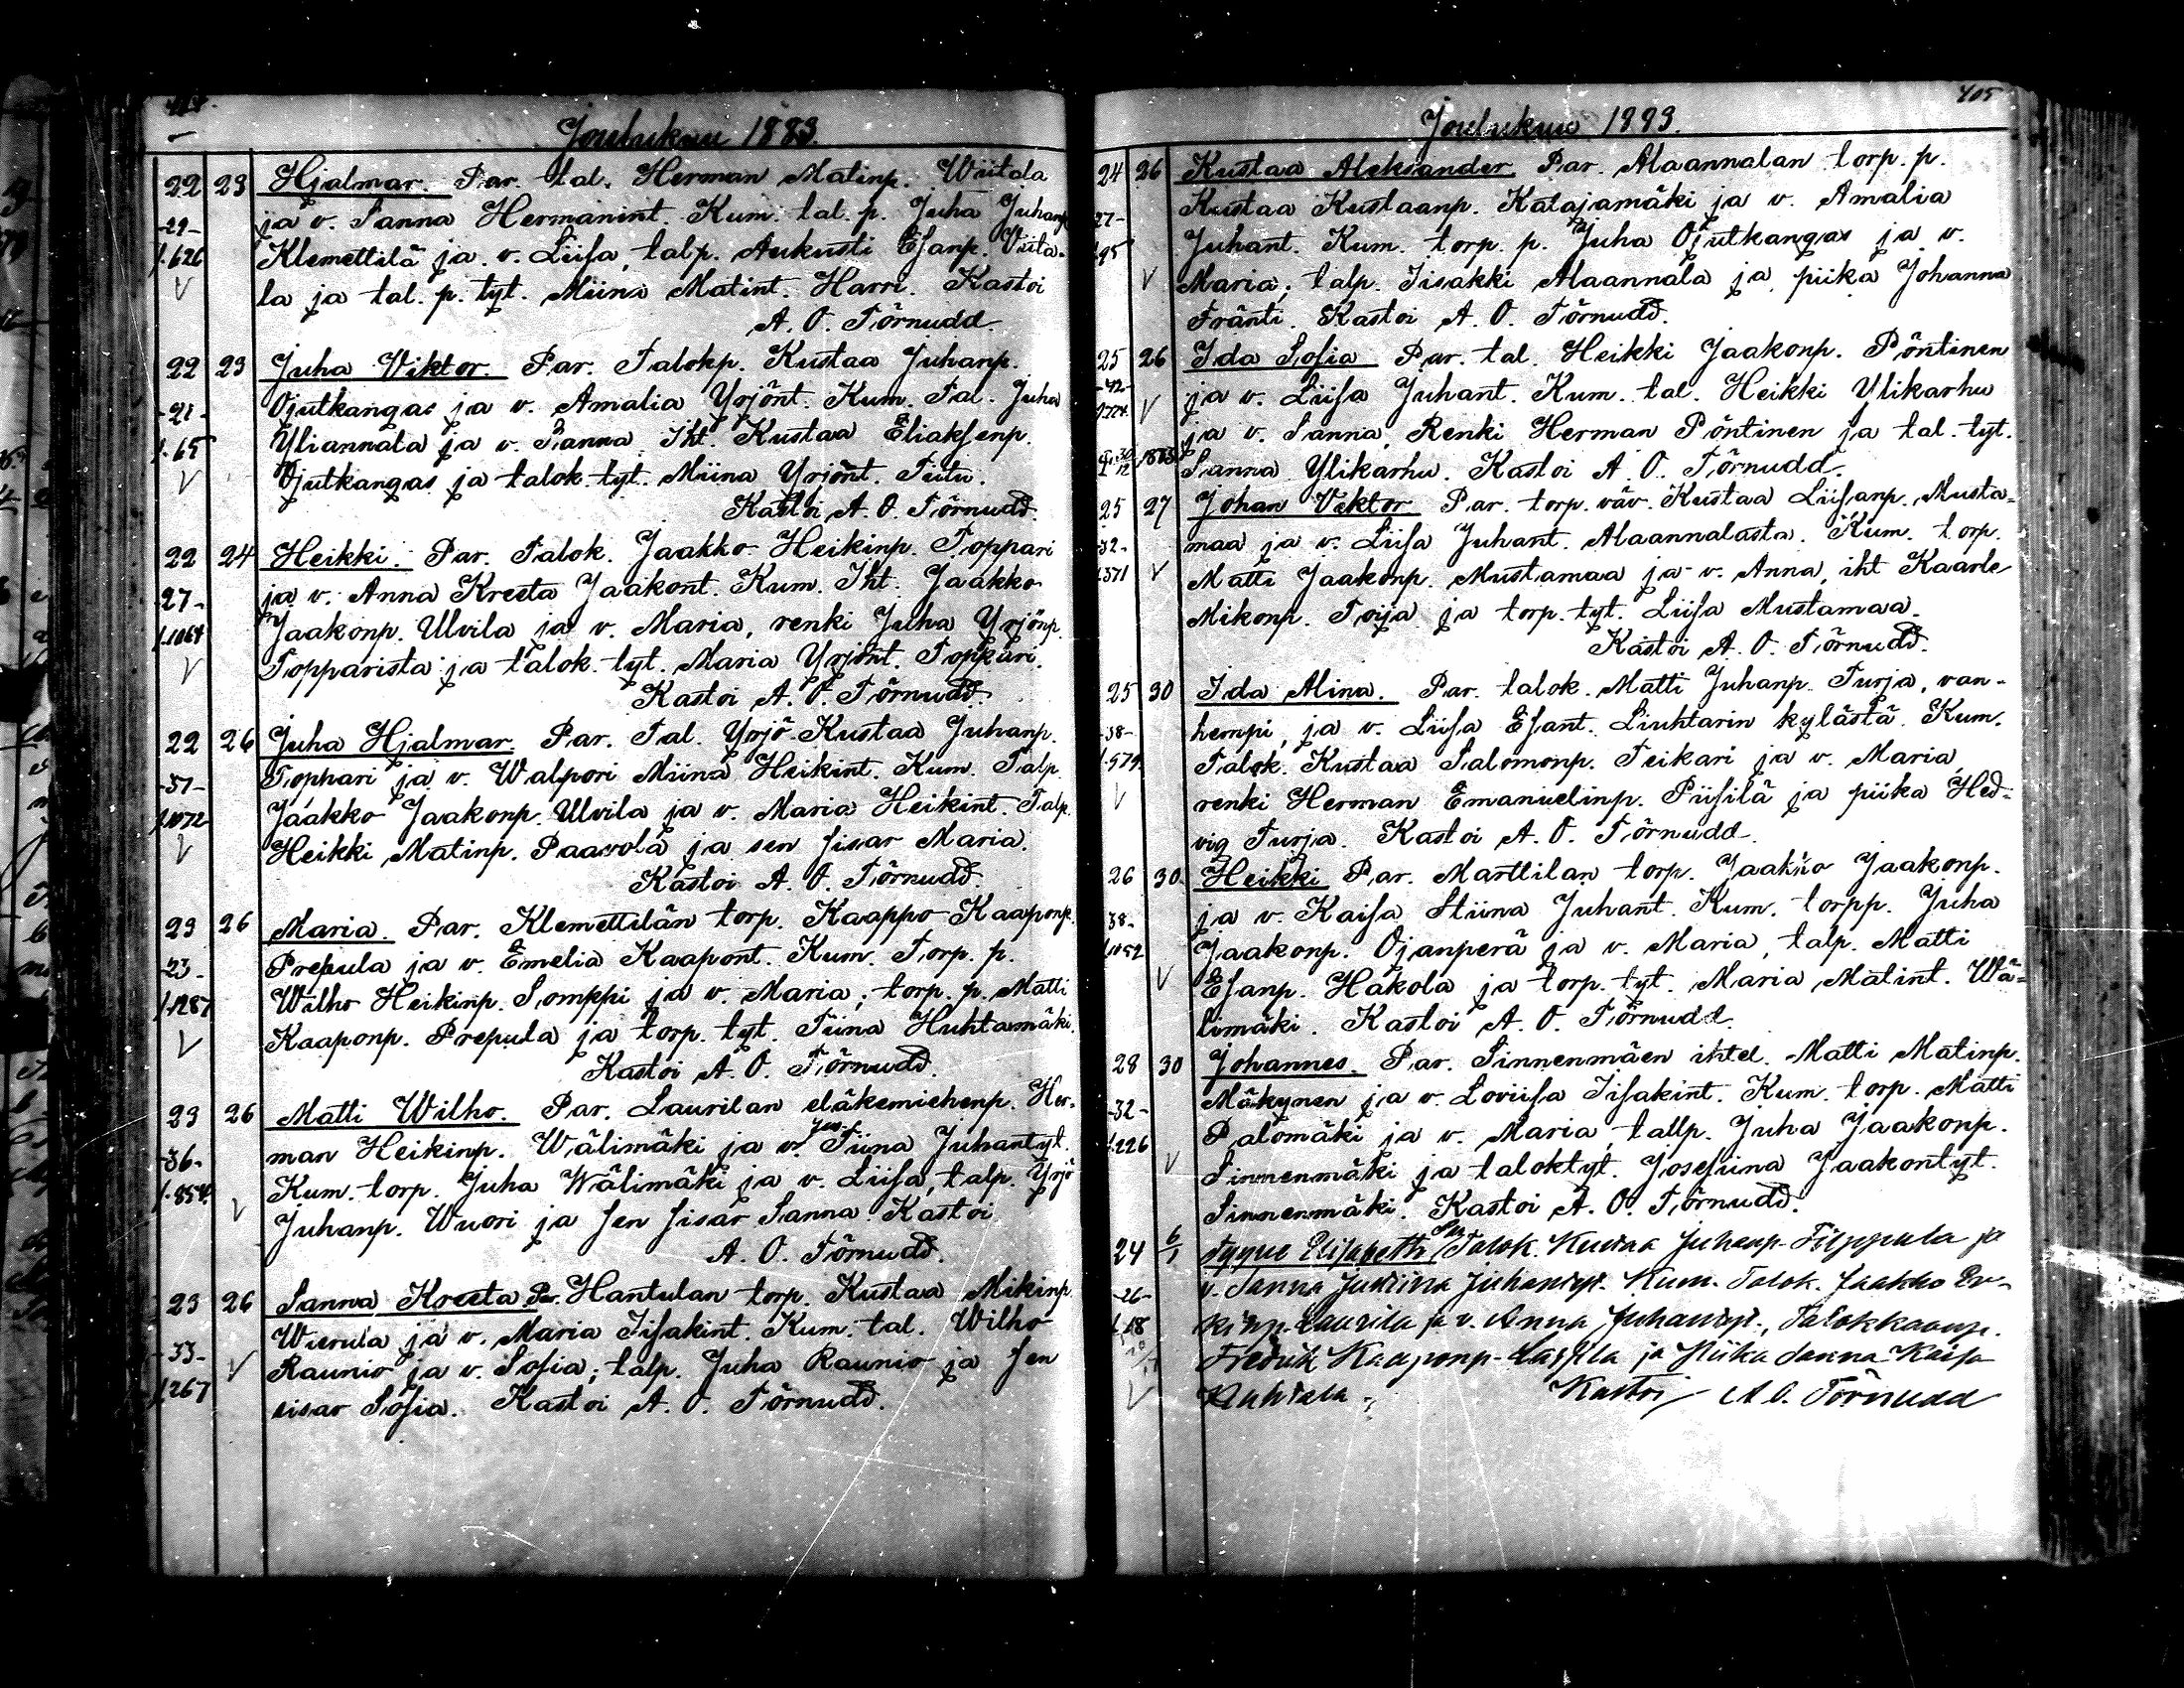 Joulukuu 1883.
22 23 Hjalmar. Par. tal. Herman Matinp. Wiitala
-29- ja v. Sanna Hermanint. Kum. tal. p. Juha Juhanp
f. 626 Klemettilä ja v. Liisa, talp. Aukusti Esanp. Viita-
V la ja tal. p. tyt. Miina Matint. Harri. Kastoi
A. O. Törnudd.
22 23 Juha Viktor. Par. Talokp. Kustaa Juhanp.
-21- Ojutkangas ja v. Amalia Yrjönt. Kum. Tal. Juha
f. 65 Yliannala ja v. Sanna. Iht. Kustaa Eliaksenp.
V Ojutkangas ja talok. tyt. Miina Yrjönt. Tiitu.
Kastoi A. O. Törnudd.
22 24 Heikki. Par. Talok. Jaakko Heikinp. Toppari
27- ja v. Anna Kreeta Jaakont. Kum. Iht. Jaakko
f. 1064 Jaakonp. Ulvila ja v. Maria, renki Juha Yrjönp.
V Topparista ja talok. tyt. Maria Yrjönt. Toppari.
Kastoi A. O. Törnudd.
22 26 Juha Hjalmar. Par. Tal. Yrjö Kustaa Juhanp.
Toppari ja v. Walpori Miina Heikint. Kum. Talp.
f. 1072 Jaakko Jaakonp. Ulvila ja v. Maria Heikint. Talp.
V Heikki Matinp. Paavola ja sen sisar Maria.
Kastoi A. O. Törnudd.
23 26 Maria. Par. Klemettilän torp. Kaappo Kaaponp.
-23- Prepula ja v. Emelia Kaapont. Kum. Torp. p.
f. 1287 Wilho Heikinp. Somppi ja v. Maria; torp. p. Matti
V Kaaponp. Prepula ja torp. tyt. Tiina Huhtamäki.
Kastoi A. O. Törnudd.
23 26 Matti Wilho. Par. Laurilan eläkemiehenp. Her-
-36- man Heikinp. Wälimäki ja v. Tiina Juhantyt.
f. 854. Kum. torp. Juha Wälimäki ja v. Liisa, talp. Yrjö
V Juhanp. Wuori ja sen sisar Sanna. Kastoi
A. O. Törnudd.
23 26 Sanna Kreeta Par. Hantulan torp. Kustaa Mikinp
-33- Wierula ja v. Maria Iisakint. Kum. tal. Wilho
V Raunio ja v. Sofia; talp. Juha Raunio ja sen
f. 267 sisar Sofia. Kastoi A. O. Törnudd.
405
Joulukuu 1883.
24 26 Kustaa Aleksander Par. Alaannalan torp. p.
27- Kustaa Kustaanp. Katajamäki ja v. Amalia
Juhant. Kum. torp. p. Juha Ojutkangas ja v.
V Maria; talp. Iisakki Alaannala ja piika Johanna
Fränti. Kastoi A. O. Törnudd.
25 26 Ida Sofia Par. tal. Heikki Jaakonp. Pöntinen
-42- ja v. Liisa Juhant. Kum. tal. Heikki Ylikarhu
V ja v. Sanna, Renki Herman Pöntinen ja tal. tyt.
Sanna Ylikarhu. Kastoi A. O. Törnudd.
25 27 Johan Viktor Par. torp. väv. Kustaa Liisanp. Musta-
32- maa ja v. Liisa Juhant. Alaannalasta. Kum. torp.
f. 371 V Matti Jaakonp. Mustamaa ja v. Anna, iht Kaarle
Mikonp. Toija ja torp. tyt. Liisa Mustamaa.
Kastoi A. O. Törnudd.
25 30 Ida Alina. Par. talok. Matti Juhanp. Turja, van-
-38- hempi, ja v. Liisa Esant. Liuhtarin kylästä. Kum.
f. 579. Talok. Kustaa Salomonp. Teikari ja v. Maria,
V renki Herman Emanuelinp. Piisilä ja piika Hed-
vig Turja. Kastoi A. O. Törnudd.
26 30. Heikki Par. Marttilan torp. Jaakko Jaakonp.
38- ja v. Kaisa Stiina Juhant. Kum. torpp. Juha
f. 1052 Jaakonp. Ojanperä ja v. Maria, talp. Matti
V Esanp. Hakola ja torp. tyt. Maria Matint. Wä-
limäki. Kastoi A. O. Törnudd.
28 30 Johannes. Par. Sinnenmäen ihtel. Matti Matinp.
-32- Mäkynen ja v. Loviisa Iisakint. Kum. torp. Matti
f. 226 Palomäki ja v. Maria, tallp. Juha Jaakonp.
V Sinnenmäki ja taloktyt. Josefiina Jaakontyt.
Sinnenmäki. Kastoi A. O. Törnudd.
24 6/1 Tyyne Elisabeth Par. Talok. Kustaa Juhanp. Filppula ja
-26- v. Sanna Justiina Juhantyt. Kum. Talok. Jaakko Er-
kinp. Laurila ja v. Anna Juhantyt., Talokkaanp.
Fredrik Kaaponp. Lassila ja Piika Sanna Kaisa
V Kastoi A. O. Törnudd